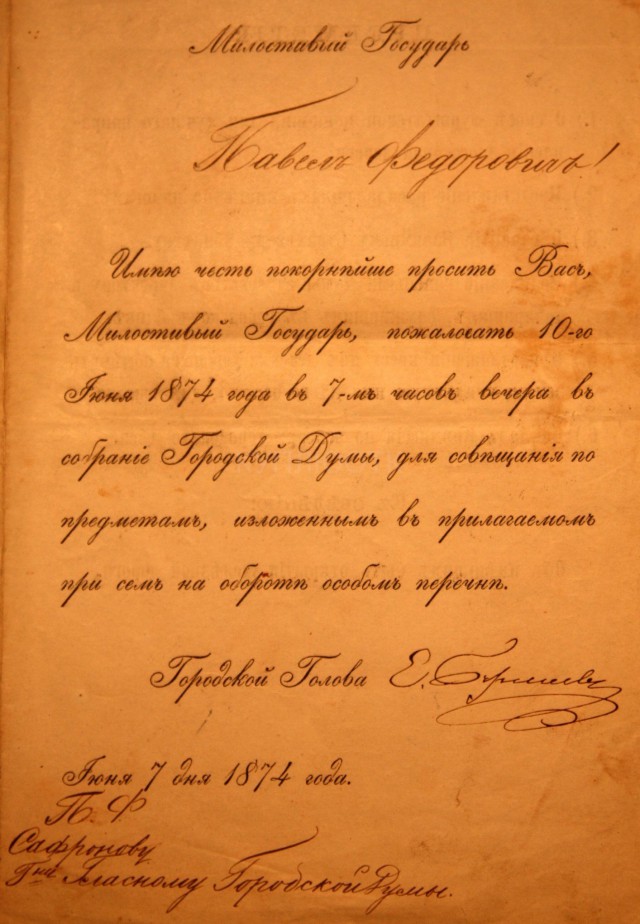 Милостивый Государь
Павелъ Федоровичъ!
Имѣю честь покорнѣйше просить Васъ,
Милостивый Государь, пожаловать 10-го
Іюня 1874 года въ 7-мъ часовъ вечера въ
собраніе Городской Думы, для совѣщанія по
предметамъ, изложеннымъ въ прилагаемомъ
при семъ на оборотѣ особомъ перечнѣ.
Городской Голова Е.
Іюня 7 дня 1874 года.
П. Ф
Сафронову
Гну Гласному Городской Думы.